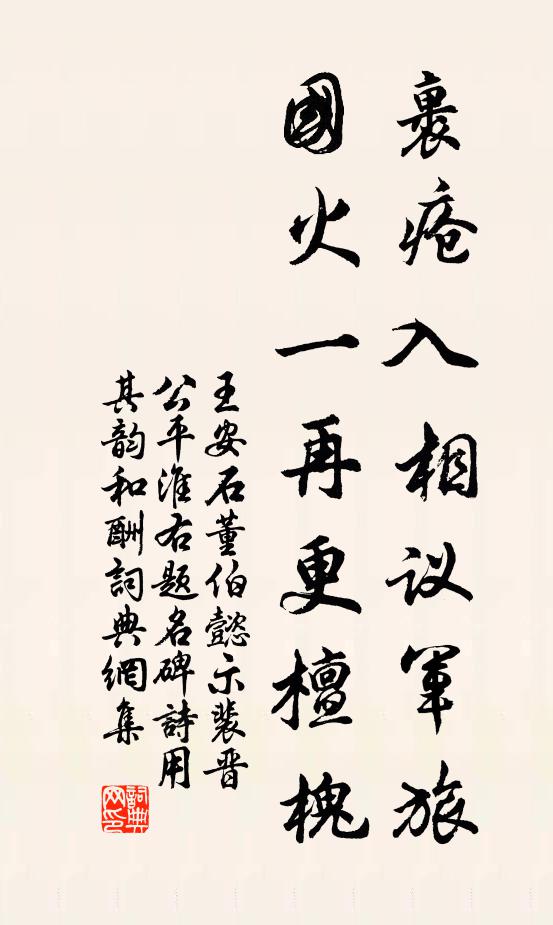 裹瘡入相议軍旅
國火一再更檀槐
王安石董伯懿示裴晋
公平淮右题名碑詩用
其韵和酬詞典網集
詞典网印